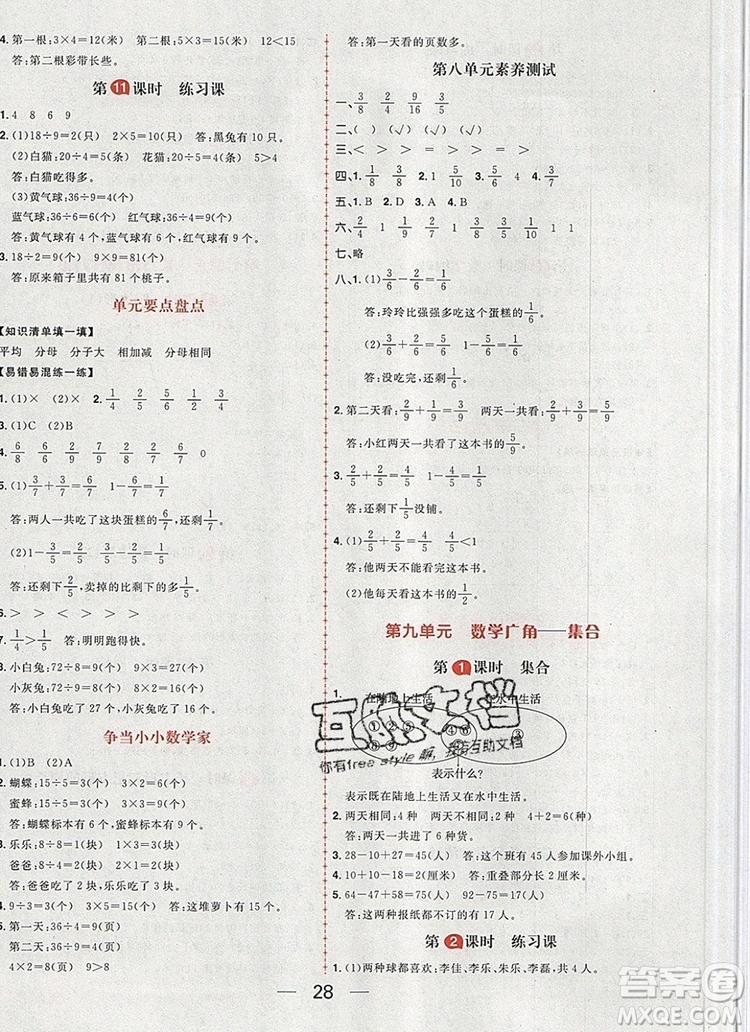 4. 第一根:3×4=12(米) 第二根:5×3=15(米) 12<15
答:第二根彩带长些。
第11课时 练习课
1. 4 8 6 9
2. (1)18÷9=2(只) 2×5=10(只) 答:黑兔有10只。
(2)白猫:20÷4=5(条) 花猫:20÷5=4(条) 5>4
答:白猫吃得多。
(3)黄气球:36÷9=4(个)
蓝气球:36÷6=6(个) 红气球:36÷4=9(个)
答:黄气球有4个,蓝气球有6个,红气球有9个。
3. 18÷2=9(个) 9×9=81(个)
答:原来箱子里共有81个桃子。
单元要点盘点
【知识清单填一填】
平均 分母 分子大 相加减 分母相同
【易错易混练一练】
1. (1)× (2)× 2. 1/2 1/4 2/5 1/6 3/5
2. (1)C (2)B
4. 6/8 6/9 7/10 2/6 2/7 5/8 0
5. (1)3/7+3/7=6/7 1-6/7=1/7
答:两人一共吃了这块蛋糕的6/7,还剩1/7。
(2)1-3/5=2/5 3/5-2/5=1/5
答:还剩2/5,卖掉的比剩下的多1/5。
> < > > < >
1/4>1/5 答:明明跑得快。
小白兔:72÷8=9(个) 36÷9=4(个)
小灰兔:72÷9=8(个) 16÷8=2(个)
答:小白兔吃了4个,小灰兔吃了2个。
争当小小数学家
1. (1)B (2)A
2. 蝴蝶:15÷5=3(个) 3×2=6(个)
蜜蜂:15÷5=3(个) 3×3=9(个)
答:蝴蝶标本有6个,蜜蜂标本有9个。
3. 乐乐:8÷8=1(块) 1×3=3(块)
爸爸:8÷4=2(块) 2×2=4(块)
答:爸爸吃的多,乐乐吃了3块,爸爸吃了4块。
4. 9÷3=3(个) 3×5=15(个) 答:这堆萝卜有15个。
5. 第一天:36÷4=9(页)
第二天:36÷9=4(页)
4×2=8(页) 9>8
答:第一天看的页数多。
第八单元素养测试
一、3/8 2/4 9/16 3/5
二、( ) (√) (√) ( )
三、< > > > = >
四、1. 1/8 3/8 2. 1/2 5/10 3. 5/6 4. 3/10
五、1. B 2. D 3. A 4. B
六、1/6 2/4 4/9 1/8 0 2/15
七、略
八、1. (1)3/6-2/6=1/6
答:玲玲比强强多吃这块蛋糕的1/6。
(2)3/6+2/6=5/6 1-5/6=1/6
答:没吃完,还剩1/6。
2. 第二天看:2/9+1/9=3/9 两天一共看:2/9+3/9=5/9
答:小红两天一共看了这本书的5/9。
3. 2/5+2/5=4/5 1-4/5=1/5
答:还剩1/5没铺。
4. (1)2/5+2/5=4/5 4/5<1
答:他两天不能看完。
(2)他每天看了这本书的2/5。
第九单元 数学广角——集合
第1课时 集合
1. 在陆地上生活 在水中生活
表示什么?
表示既在陆地上生活又在水中生活。
2. 两天相同:2种 两天不同:2种 4+2=6(种)
答:两天一共进了6种货。
3. 28-10+27=45(人) 答:这个班有45人参加课外小组。
4. 38+20-10=48(厘米) 答:重叠部分长10厘米。
5. 64-47+58=75(人) 92-75=17(人)
答:这两种报纸都不订的有17人。
第2课时 练习课
1. (1)两种球都喜欢:李佳、李乐、朱乐、李磊,共4人。
28
互助文档
你有free style嘛,我有互助文档
答案圈
MXQE.COM